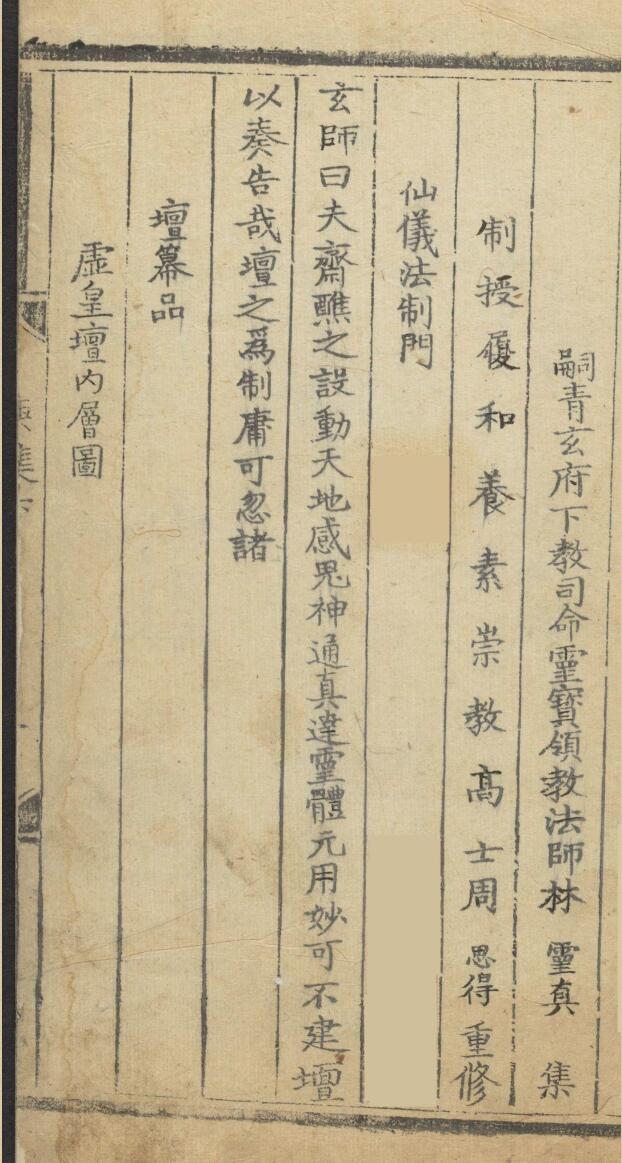 嗣青玄府下教司命靈寶領教法師林 靈真 集
制授履和養素崇教高士周 思得重修
仙儀法制門
玄師曰夫齋醮之設動天地感鬼神通真達靈體元用妙可不建壇
以奏告哉壇之爲制庸可忽諸
壇幕品
虛皇壇內層圖